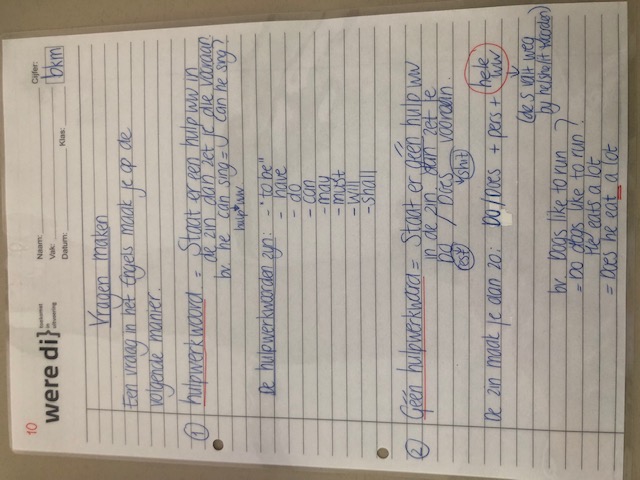 10
were di}
Naam:
Vak:
Datum:
Klas:
Cijfer:
bkm
Vragen maken
Een vraag in het Engels maak je op de
volgende manier.
① hulpwerkwoord = Staat er een hulp ww in
de zin dan zet je die vooraan.
bv. he can sing = Can he sing?
hulp ww
De hulpwerkwoorden zijn: - "to be"
- have
- do
- can
- may
- must
- will
- shall
② Géén hulpwerkwoord = Staat er géén hulp ww
in de zin dan zet je
Do / Does vooraan.
De zin maak je dan zo: Do/Does + pers + hele
ww
(de S valt weg
bv. Dogs like to run
= Do dogs like to run?
He eats a lot
= Does he eat a lot